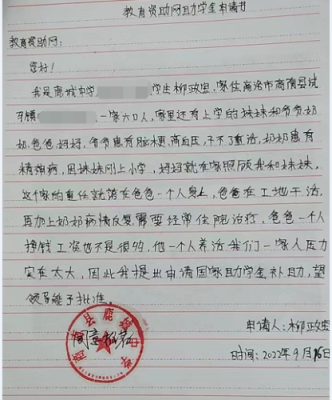 教育资助网助学金申请书
教育资助网:
您好!
我是鹿城中学 学生柳政里,家住商洛市商南县试
马镇 一家六口人,家里还有上学的妹妹和爷爷奶
奶,爸爸,妈妈,爷爷患有脑梗,高血压,干不了重活,奶奶患有
精神病,因妹妹刚上小学,妈妈就在家照顾我和妹妹,
这个家的重任就落在爸爸一个人身上,爸爸在工地干活,
再加上奶奶病情反复需要经常住院治疗,爸爸一个人
挣钱工资也不是很高,他一个人养活我们一家人压力
实在太大,因此我提出申请国家助学金补助,望
领导能予批准。
商南县鹿城中学
同意
申请人:柳政里
时间:2022年9月16日